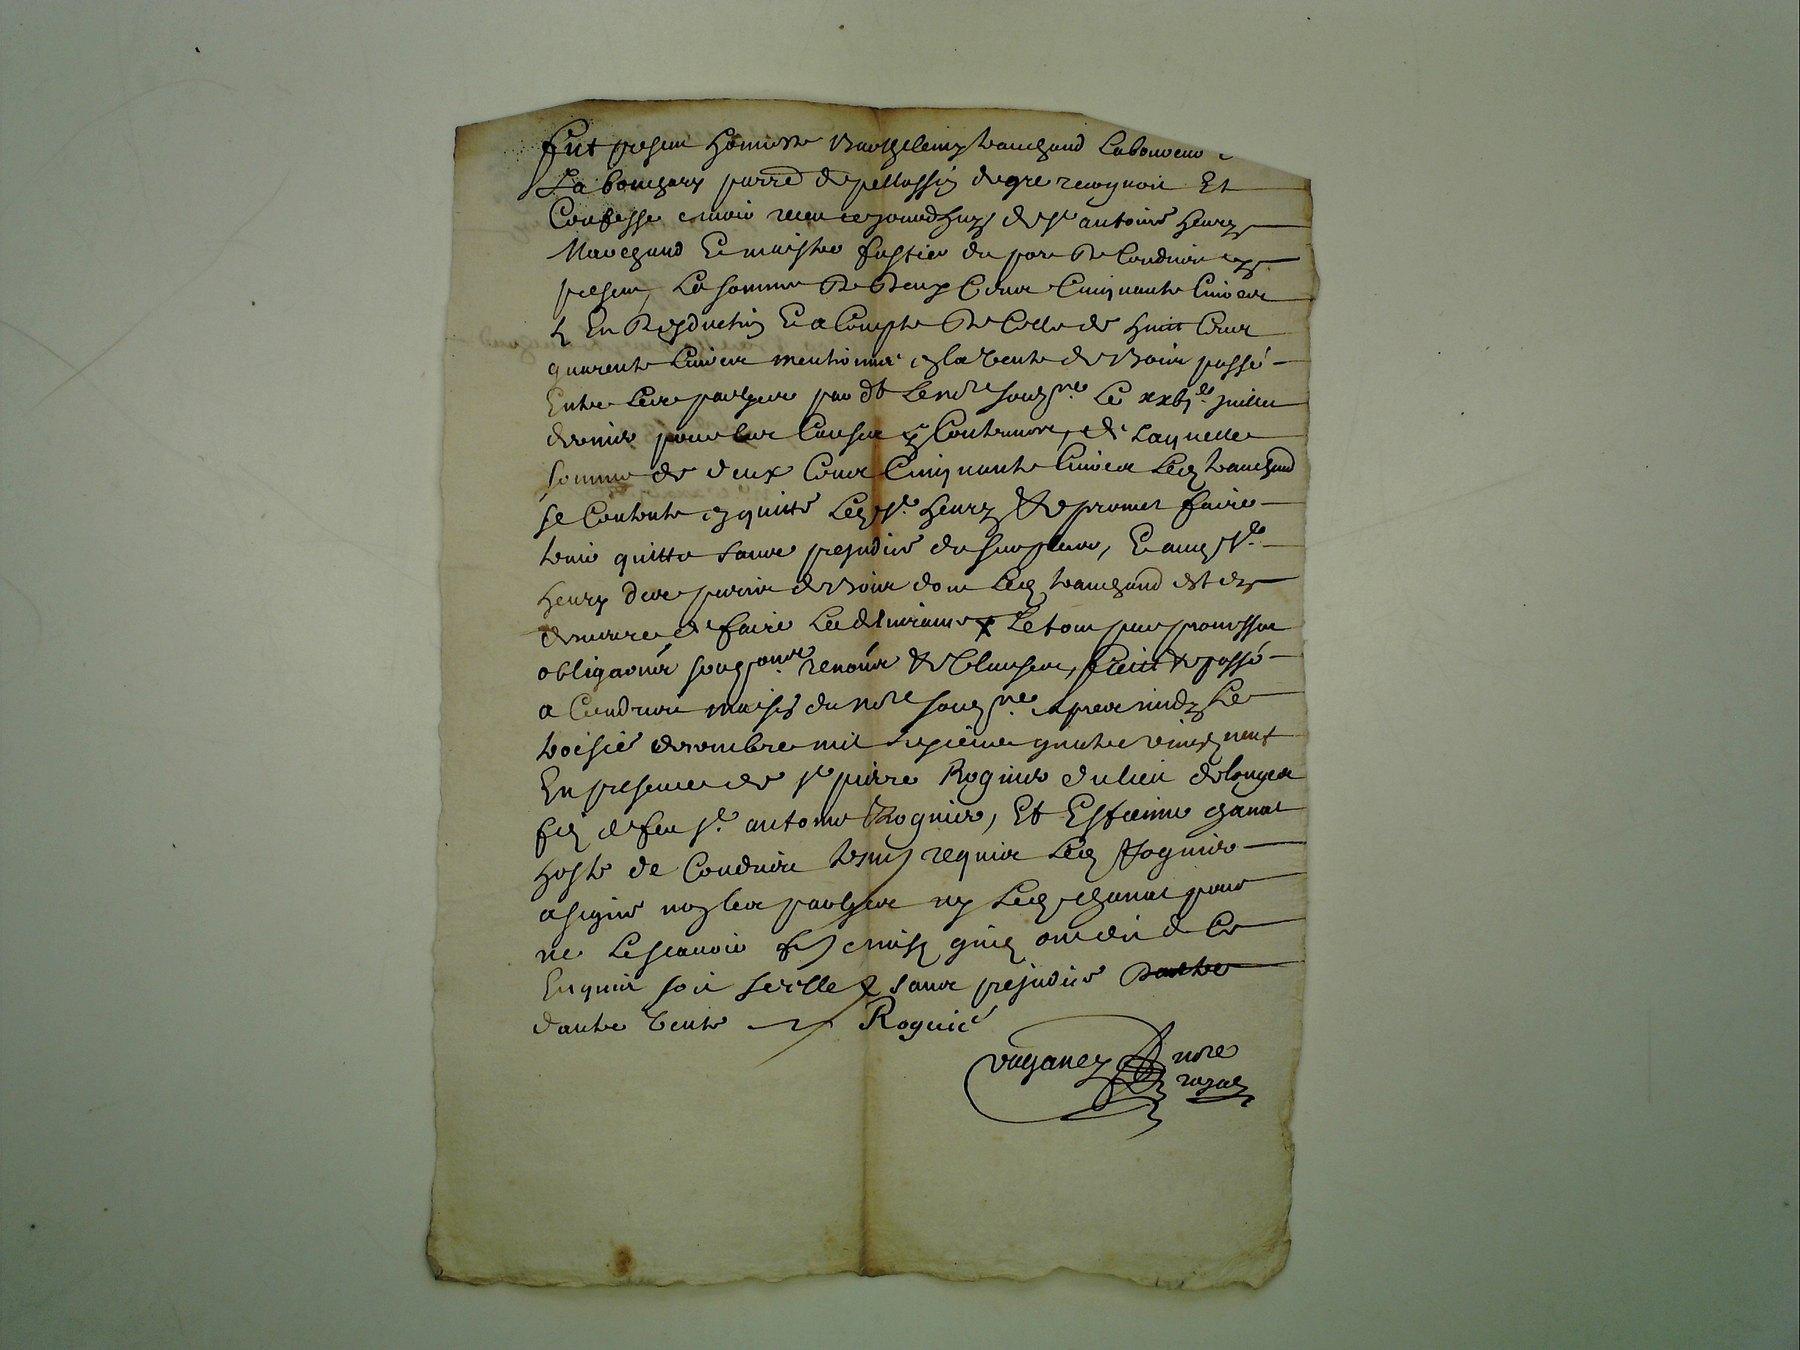 fut present honneste Barthelemy tranchand Laboureur
La bouchery parre de pellussin de gre recognoit Et
Confesse avoir receu cejourdhuy de sr antoine henry
Marchand Et maistre fustier du port de Condrieu cy
present, La somme de deux Cens Cinquante Livres
Et En deduction Et a Compte de Celle de huit Cens
quarente Livres mentionnee en la vente de Bois passé
Entre Les parties par dt Le nore soubsne Le xxbie juillet
dernier pour les Causes y Contenues, de Laquelle
somme de deux Cens Cinquante Livres Led tranchand
se Contente en quitte Led sr henry Et promet faire
tenir quitte sans prejudice du surplus, Et aud sr
henry des parties de Bois dont Led tranchand est en
demeure de faire La delivrance Le tout par promesses
obligaons soubmons renons Et Clauses, fait Et passé
a Condrieu maison du nore soubsne apres midy Le
troisie decembre mil six cens quatre vingt neuf
En presence de sr pierre Rognier du lieu de longes
fils de feu sr antoine Rognier, Et Estienne chanal
hoste de Condrieu tesm requis Led Rognier
a signé non les parties ny Led chanal pour
ne Le scavoir
Enquis soit sans prejudice dautre
dautre vente Rognié
vaganey nore
royal